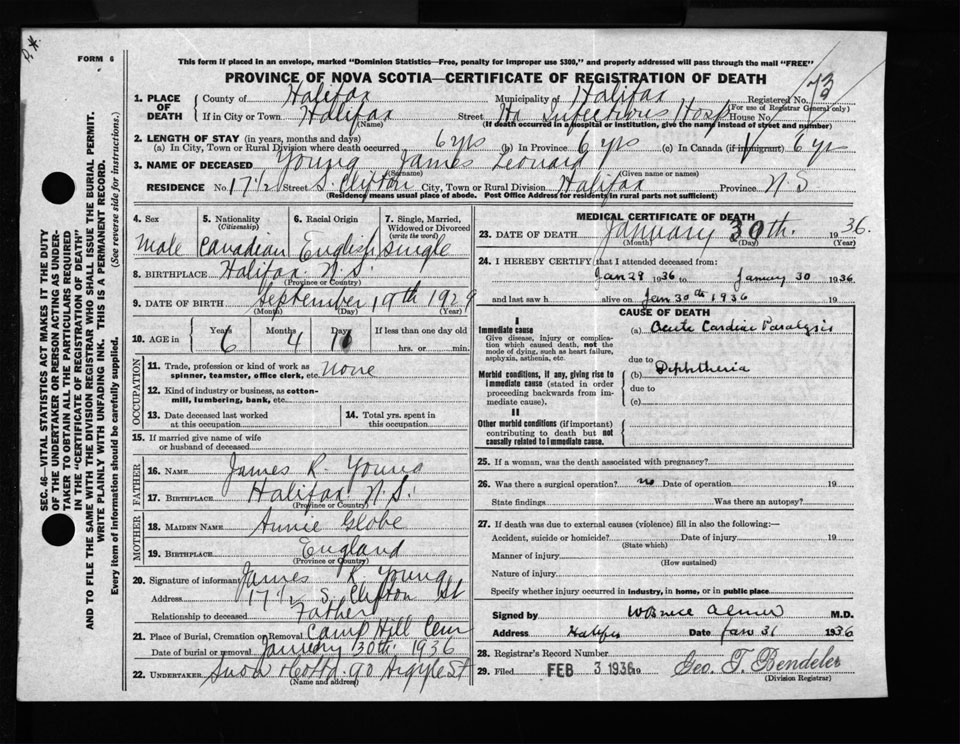 FORM 6
This form if placed in an envelope, marked "Dominion Statistics—Free, penalty for improper use $300," and properly addressed will pass through the mail "FREE"
PROVINCE OF NOVA SCOTIA—CERTIFICATE OF REGISTRATION OF DEATH
73
1. PLACE OF DEATH
County of Halifax Municipality of Halifax Registered No.
(For use of Registrar General only)
If in City or Town Halifax Street Hx Infectious Hosp House No.
(Name) (If death occurred in a hospital or institution, give the name instead of street and number)
2. LENGTH OF STAY (in years, months and days)
(a) In City, Town or Rural Division where death occurred 6 yrs (b) In Province 6 yrs (c) In Canada (if immigrant) 6 yrs
3. NAME OF DECEASED Young James Leonard
(Surname) (Given name or names)
RESIDENCE No. 17 1/2 Street S. Clifton City, Town or Rural Division Halifax Province N.S
(Residence means usual place of abode. Post Office Address for residents in rural parts not sufficient)
4. Sex 5. Nationality 6. Racial Origin 7. Single, Married, Widowed or Divorced
(Citizenship) (write the word)
Male Canadian English Single
8. BIRTHPLACE Halifax N.S.
(Province or Country)
9. DATE OF BIRTH September 19th 1929
(Month) (Day) (Year)
10. AGE in Years Months Days If less than one day old
6 4 11 hrs. or min.
OCCUPATION
11. Trade, profession or kind of work as spinner, teamster, office clerk, etc. None
12. Kind of industry or business, as cotton-mill, lumbering, bank, etc.
13. Date deceased last worked at this occupation
14. Total yrs. spent in this occupation
15. If married give name of wife or husband of deceased
FATHER
16. NAME James R. Young
17. BIRTHPLACE Halifax N.S.
(Province or Country)
MOTHER
18. MAIDEN NAME Annie Globe
19. BIRTHPLACE England
(Province or Country)
20. Signature of informant James R Young
Address 17 1/2 S. Clifton St
Relationship to deceased Father
21. Place of Burial, Cremation or Removal Camp Hill Cem
Date of burial or removal January 30th 1936
22. UNDERTAKER Snow &Co Ltd. 90 Argyle St
(Name and address)
MEDICAL CERTIFICATE OF DEATH
23. DATE OF DEATH January 30th. 1936.
(Month) (Day) (Year)
24. I HEREBY CERTIFY that I attended deceased from:
Jan 29 1936 to January 30 1936
and last saw h alive on Jan 30th 1936
CAUSE OF DEATH
I
Immediate cause
Give disease, injury or complication which caused death, not the mode of dying, such as heart failure, asphyxia, asthenia, etc.
(a) Acute Cardiac Paralysis
due to
Morbid conditions, if any, giving rise to immediate cause (stated in order proceeding backwards from immediate cause).
(b) Diphtheria
due to
(c)
II
Other morbid conditions (if important) contributing to death but not causally related to immediate cause.
25. If a woman, was the death associated with pregnancy?
26. Was there a surgical operation? no Date of operation 19
State findings Was there an autopsy?
27. If death was due to external causes (violence) fill in also the following:—
Accident, suicide or homicide? Date of injury 19
(State which)
Manner of injury
(How sustained)
Nature of injury
Specify whether injury occurred in industry, in home, or in public place
Signed by W Bruce Almon M.D.
Address Halifax Date Jan 31 1936
28. Registrar's Record Number
29. Filed FEB 3 1936 19 Geo. T. Bendeler
(Division Registrar)
SEC. 46—VITAL STATISTICS ACT MAKES IT THE DUTY
OF THE UNDERTAKER OR PERSON ACTING AS UNDER-
TAKER TO OBTAIN ALL THE PARTICULARS REQUIRED
IN THE "CERTIFICATE OF REGISTRATION OF DEATH"
AND TO FILE THE SAME WITH THE DIVISION REGISTRAR WHO SHALL ISSUE THE BURIAL PERMIT.
WRITE PLAINLY WITH UNFADING INK. THIS IS A PERMANENT RECORD.
Every item of information should be carefully supplied. (See reverse side for instructions.)